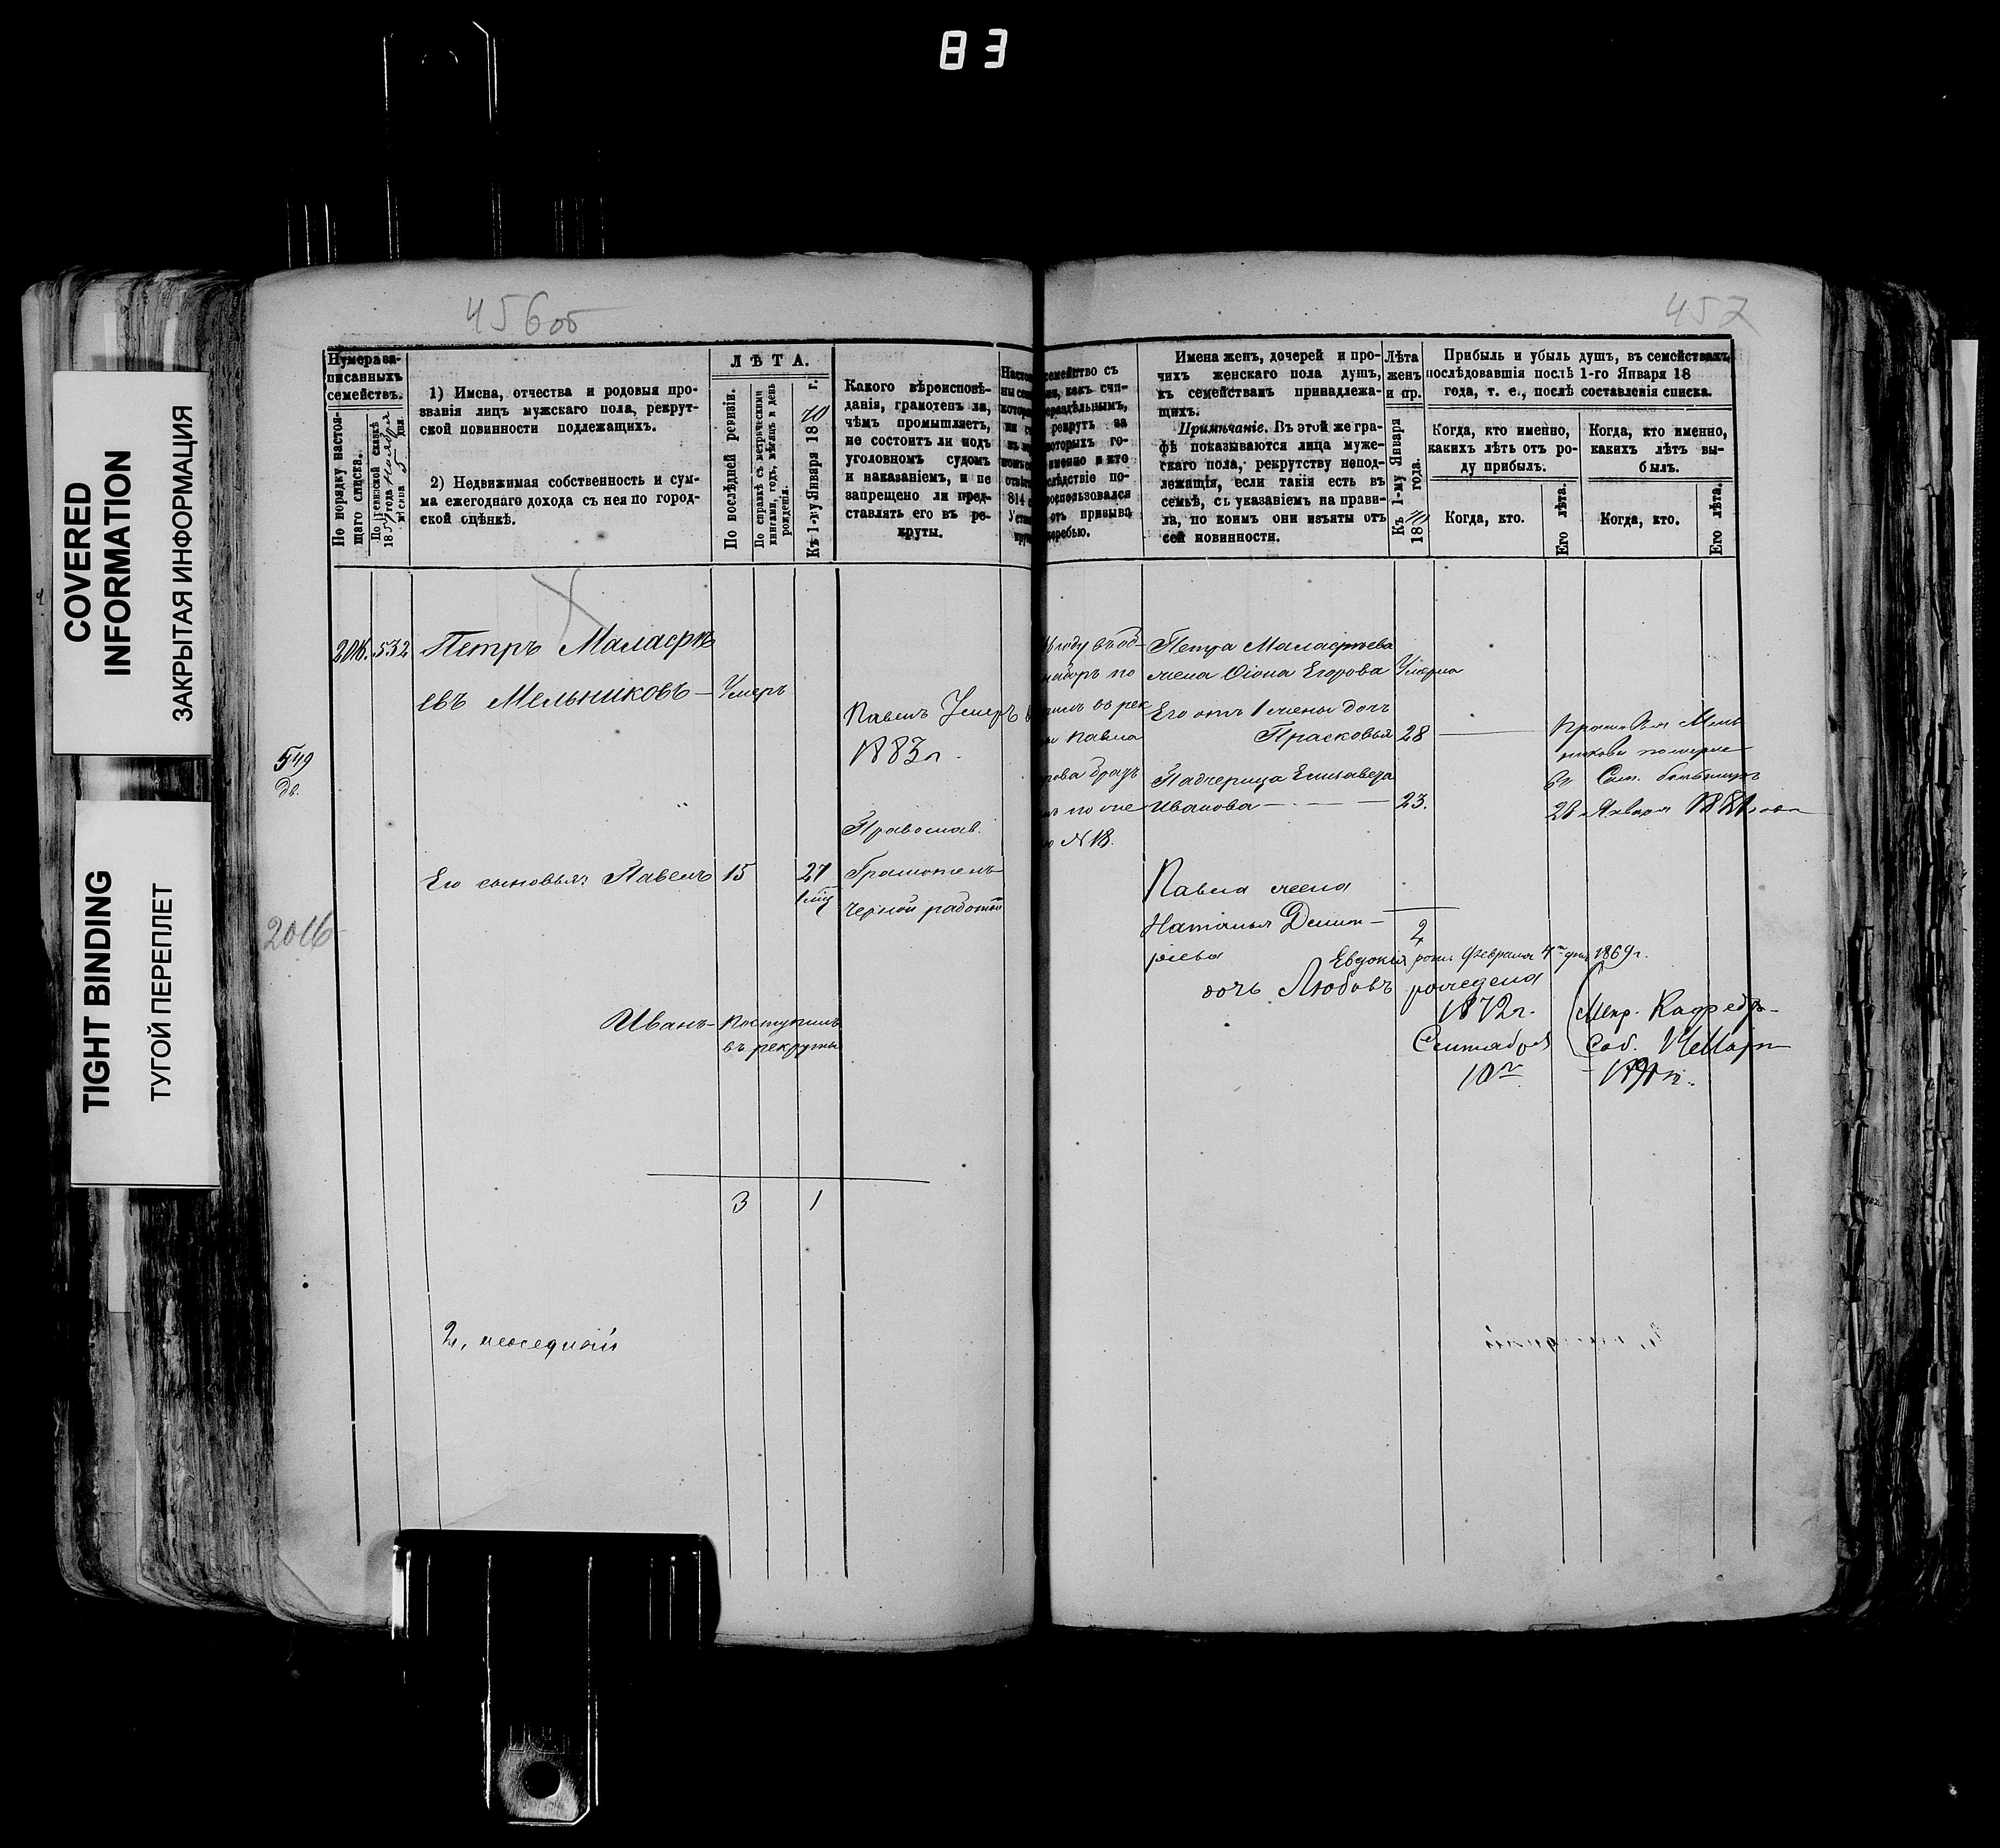 83
COVERED
INFORMATION
ЗАКРЫТАЯ ИНФОРМАЦИЯ
TIGHT BINDING
ТУГОЙ ПЕРЕПЛЕТ
456об
Нумера за-
писанныхъ
семействъ.
По порядку настоя-
щаго списка.
По ревизской сказкѣ
1857 года Ноября
мѣсяца 5 дня.
1) Имена, отчества и родовыя про-
званія лицъ мужскаго пола, рекрут-
ской повинности подлежащихъ.
2) Недвижимая собственность и сум-
ма ежегоднаго дохода съ нея по город-
ской оцѣнкѣ.
ЛѢТА.
По послѣдней ревизіи.
По справкѣ съ метрическими
книгами, годъ, мѣсяцъ и день
рожденія.
Къ 1-му Января 1870 г.
Какого вѣроисповѣ-
данія, грамотенъ ли,
чѣмъ промышляетъ,
не состоитъ ли подъ
уголовномъ судомъ
и наказаніемъ, и не
запрещено ли пред-
ставлять его въ ре-
круты.
2016. 532 Петръ Маласфѣ
евъ Мельниковъ — Умеръ
Павелъ Умеръ
1883 г.
549
Дв.
Православ.
Его сыновья: Павелъ 15 27 Грамотенъ
1 мѣс черной работой
2016
Иванъ — поступилъ
въ рекруты
3 1
2, неоседлый
457
семейство съ
какъ счи-
нераздѣльнымъ,
рекрутъ за
которыхъ го-
именно и кто
слѣдствіе по-
воспользовался
отъ призыва
жеребью.
Имена женъ, дочерей и про-
чихъ женскаго пола душъ,
къ семействамъ принадлежа-
щихъ.
Примѣчаніе. Въ этой же гра-
фѣ показываются лица муже-
скаго пола, рекрутству непод-
лежащія, если такія есть въ
семьѣ, съ указаніемъ на прави-
ла, по коимъ они изъяты отъ
сей повинности.
Лѣта
женъ
и пр.
Къ 1-му Января
1870 года.
Прибыль и убыль душъ, въ семействахъ
послѣдовавшія послѣ 1-го Января 18
года, т. е., послѣ составленія списка.
Когда, кто именно,
какихъ лѣтъ отъ ро-
ду прибылъ.
Когда, кто именно,
какихъ лѣтъ вы-
былъ.
Когда, кто.
Его лѣта.
Когда, кто.
Его лѣта.
году въ об- Петра Маласфѣева
наборъ по жена Фіона Егорова Умерла
въ рек Его отъ 1 жены дочь
Павла Прасковья 28
Прасковья Мель
никова померла
въ больницѣ
28 Января 1881 года
Падчерица Елисавета
Иванова — 23.
№ 18.
Павла жена
Наталья Димит-
ріева 2
Евдокія рож. Февраля 4го дня 1869 г.
дочь Любовь рождена
1872 г.
Сентября
10го
Метр. Кафедр.
Соб.